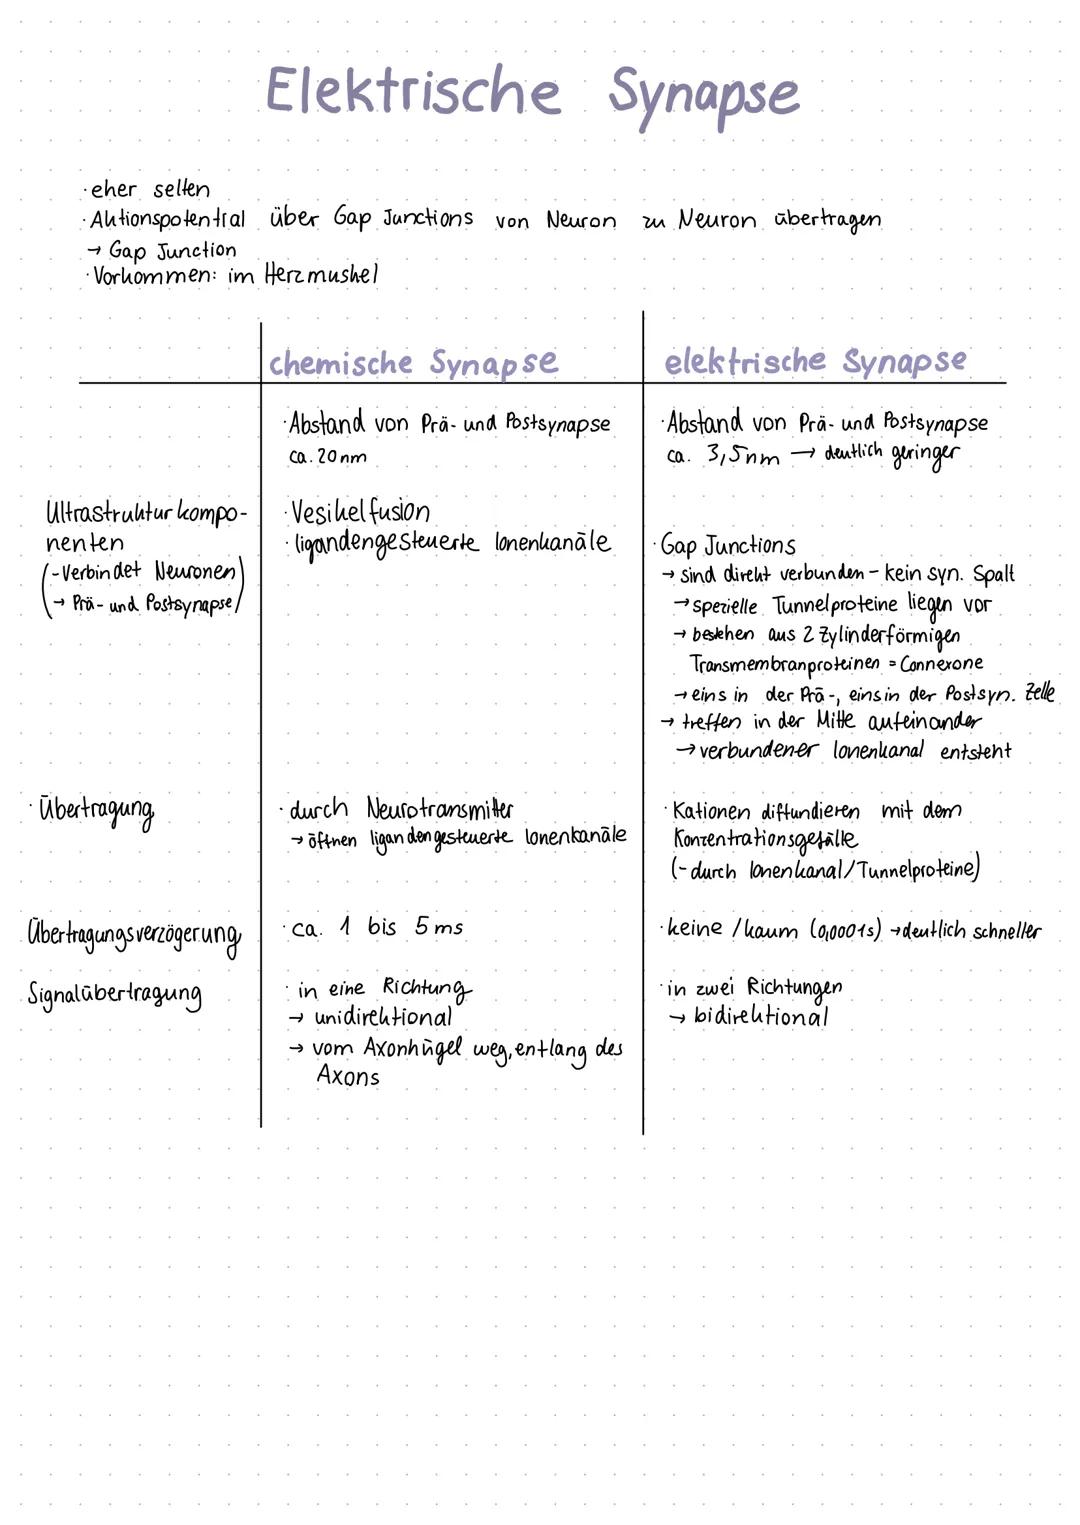 Elektrische Synapse
·eher selten
·Aktionspotential über Gap Junctions von Neuron zu Neuron übertragen
→ Gap Junction
·Vorkommen: im Herzmuskel
chemische Synapse
elektrische Synapse
·Abstand von Prä- und Postsynapse
ca. 20 nm
·Abstand von Prä- und Postsynapse
ca. 3,5nm → deutlich geringer
Ultrastrukturkompo-
nenten
(-Verbindet Neuronen
→ Prä- und Postsynapse)
·Vesikelfusion
·ligandengesteuerte Ionenkanäle
·Gap Junctions
→ sind direkt verbunden - kein syn. Spalt
→ spezielle Tunnelproteine liegen vor
→ bestehen aus 2 Zylinderförmigen
Transmembranproteinen = Connexone
→ eins in der Prä-, eins in der Postsyn. Zelle
→ treffen in der Mitte aufeinander
→ verbundener Ionenkanal entsteht
·Übertragung
·durch Neurotransmitter
→ öffnen ligandengesteuerte Ionenkanäle
·Kationen diffundieren mit dem
Konzentrationsgefälle
(-durch Ionenkanal/Tunnelproteine)
Übertragungsverzögerung
·ca. 1 bis 5 ms
·keine /kaum (0,0001s) → deutlich schneller
Signalübertragung
·in eine Richtung
→ unidirektional
→ vom Axonhügel weg, entlang des
Axons
·in zwei Richtungen
→ bidirektional